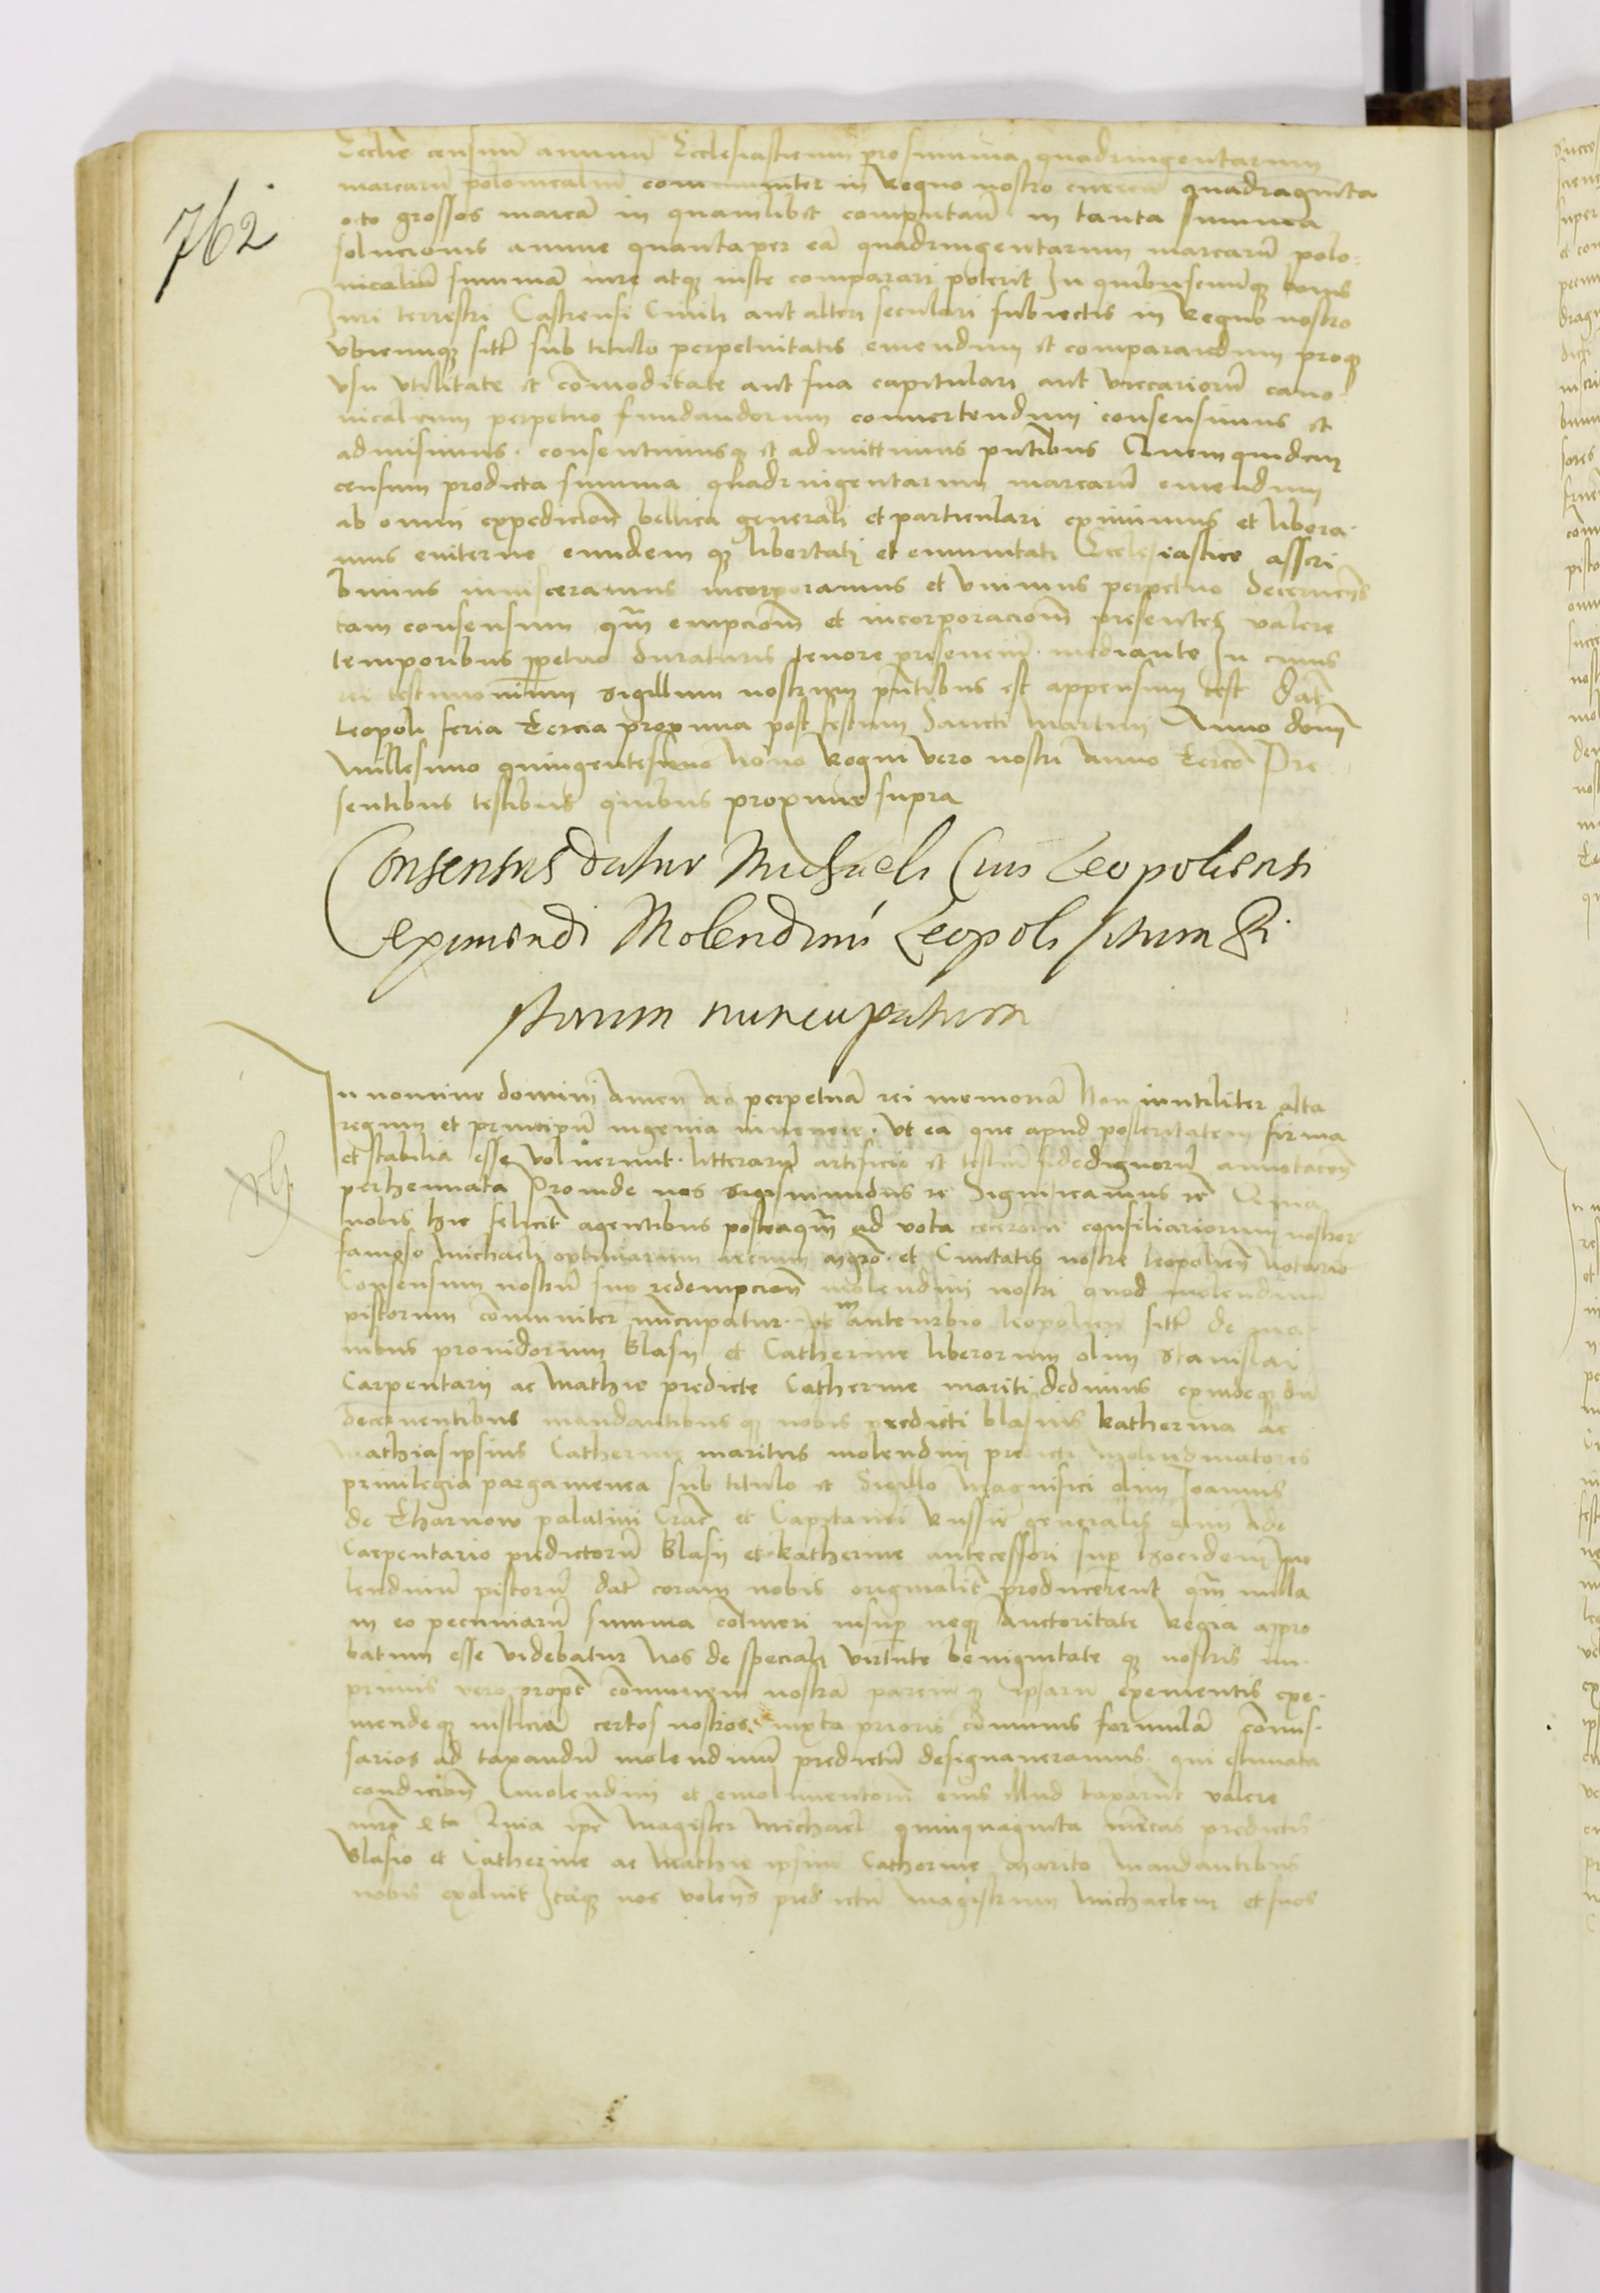 762
Ecclie censum annuum Ecclesiasticum pro summa quadringentarum
marcarū polonicaliū communiter in Regno nostro currentiū quadraginta
octo grossos marcā in quamlibet computañ in tanta summa
solucionis annue quanta per eā quadringentarum marcarū polo-
nicaliū summā iure atq iuste comparari poterit In quibuscumq bonis
Iuri terrestri Castrensi Civili aut alteri seculari subiectis in Regno nostro
vbicumq sitis sub titulo perpetuitatis emendum et comparandum proq
vsu vtilitate et cōmoditate aut sua capitulari aut vicariorū cano-
nicalium perpetuo fundandorum convertendum consensimus et
admisimus. consentimusq et admittimus pntibus Quemquidem
censum predicta summa quadringentarum marcarū emendum
ab omni expedicione bellica generali et particulari eximimus et libera-
mus eviterne eundem q libertati et emunitati Ecclesiastice asscri
bimus invisceramus incorporamus et vnimus perpetuo decernens
tam consensum qm empcionē et incorporacionē presentes valere
temporibus ppetuo duraturis tenore presenciū mediante In cuius
rei testimonium sigillum nostrum pntibus est appensum Dat
Leopoli feria tercia proxima post festum Sancti Martini Anno domī
Millesimo quingentesimo Nono Regni vero nostri Anno tercō Pre
sentibus testibus quibus proxime supra
Consensus datur Michaeli Civi Leopoliensi
eximendi Molendinū Leopoli situm Pi
storum nuncupatum
In nomine dominī Amen Ad perpetuā rei memoriā Non inutiliter alta
regum et principū ingenia invenere. Vt ea que apud posteritatem firma
et stabilia esse voluerunt. litterarū artificio et testiū fidedignorū annotacōe
perhennata Proinde nos Sigismundus rc Significamus rc Quia
nobis hic felicit agentibus posteaqm ad vota consiliariorum nostror
famoso Michaeli optimarum arcium mgro. et Civitatis nostre leopolien Notario
Consensum nostrū sup redempcionē molendini nostri quod molendinū
pistorum cōmuniter nūcupatur. in anteurbio leopolien sitū de ma-
nibus providorum Blasii et Catherine liberorum olim Stanislai
Carpentarii ac Mathie predicte Catherine mariti dedimus exindeq dū
decernentibus mandantibus q nobis predicti Blasius Katherina ac
Mathias ipsius Catherine maritus molendini predicti molendinatores
privilegia pargamenea sub titulo et Sigillo Magnifici olim Joannis
de Tharnow palatini Crac et Capitanei Russie generalis
Carpentario predictorū Blasii et Katherine antecessori sup hocidem mo
lendinū pistorū dat coram nobis originalit producerent qm nulla
in eo pecuniarū summa cōtineri insup neq Auctoritate Regia appro
batum esse videbatur Nos de speciali virtute benignitate q nostris im-
primis vero propt cōmunem nostrā parem q ipsarū exementis exe-
mende q iusticiā certos nostros iuxta prioris formulā cōmis-
sarios ad taxandū molendinū predictū designaveramus. qui estimata
condicionē molendini et emolimentorū eius illud taxarūt valere
Quia ipē Magister Michael quinquaginta mrcas predictis
Blasio et Catherine ac Mathie ipsius Catherine marito mandantibus
nobis exoluit Itaq nos volens predictū magistrum Michaelem et suos